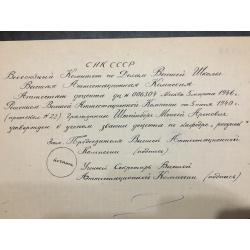 СНК СССР
Всесоюзный Комитет по Делам Высшей Школы
Высшая Аттестационная Комиссия
Аттестат доцента дц № 006304 Москва 3 марта 1946 г.
Решением Высшей Аттестационной Комиссии от 5 июля 1940 г.
(протокол № 22) гражданин Штейнберг Моисей Аронович
утвержден в ученом звании доцента по кафедре „физика“
Зам. Председателя Высшей Аттестационной
Комиссии (подпись)
печать
Ученый Секретарь Высшей
Аттестационной Комиссии (подпись)